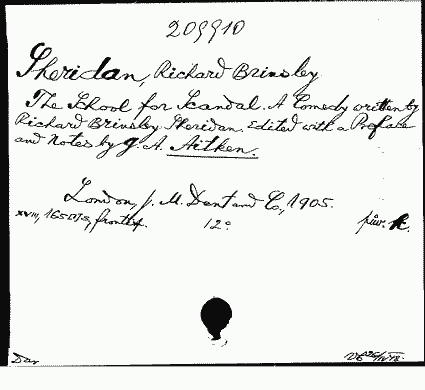 209910
Sheridan, Richard Brinsley
The School for Scandal. A Comedy written by
Richard Brinsley Sheridan. Edited with a Preface
and Notes by G. A. Aitken.
London, J. M. Dent and Co., 1905.
XVIII, 165 pp., frontisp. 12°